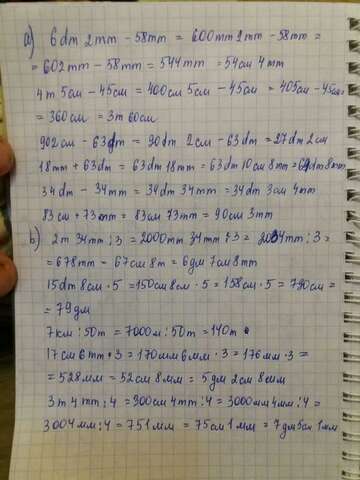 a) 6dm 2mm - 58mm = 600mm 2mm - 58mm =
= 602mm - 58mm = 544mm = 54см 4mm
4m 5см - 45см = 400см 5см - 45см = 405см - 45см
= 360см = 3m 60см
902см - 63dm = 90dm 2см - 63dm = 27dm 2см
18mm + 63dm = 63dm 18mm = 63dm 10см 8mm = 8mm
34dm - 34mm = 34dm 34mm = 34dm 3см 4mm
83см + 73mm = 83см 73mm = 90см 3mm
b) 2m 34mm : 3 = 2000mm 34mm : 3 = 2034mm : 3 =
= 678mm - 67см 8m = 6дм 7см 8mm
15dm 8см · 5 = 150см 8см · 5 = 158см · 5 = 790см =
= 79дм
7км : 50m = 7000м : 50m = 140m
17см 6mm · 3 = 170мм 6мм · 3 = 176мм · 3 =
= 528мм = 52см 8мм = 5дм 2см 8мм
3m 4mm : 4 = 300см 4mm : 4 = 3000мм 4мм : 4 =
3004мм : 4 = 751мм = 75см 1мм = 7дм 5см 1мм